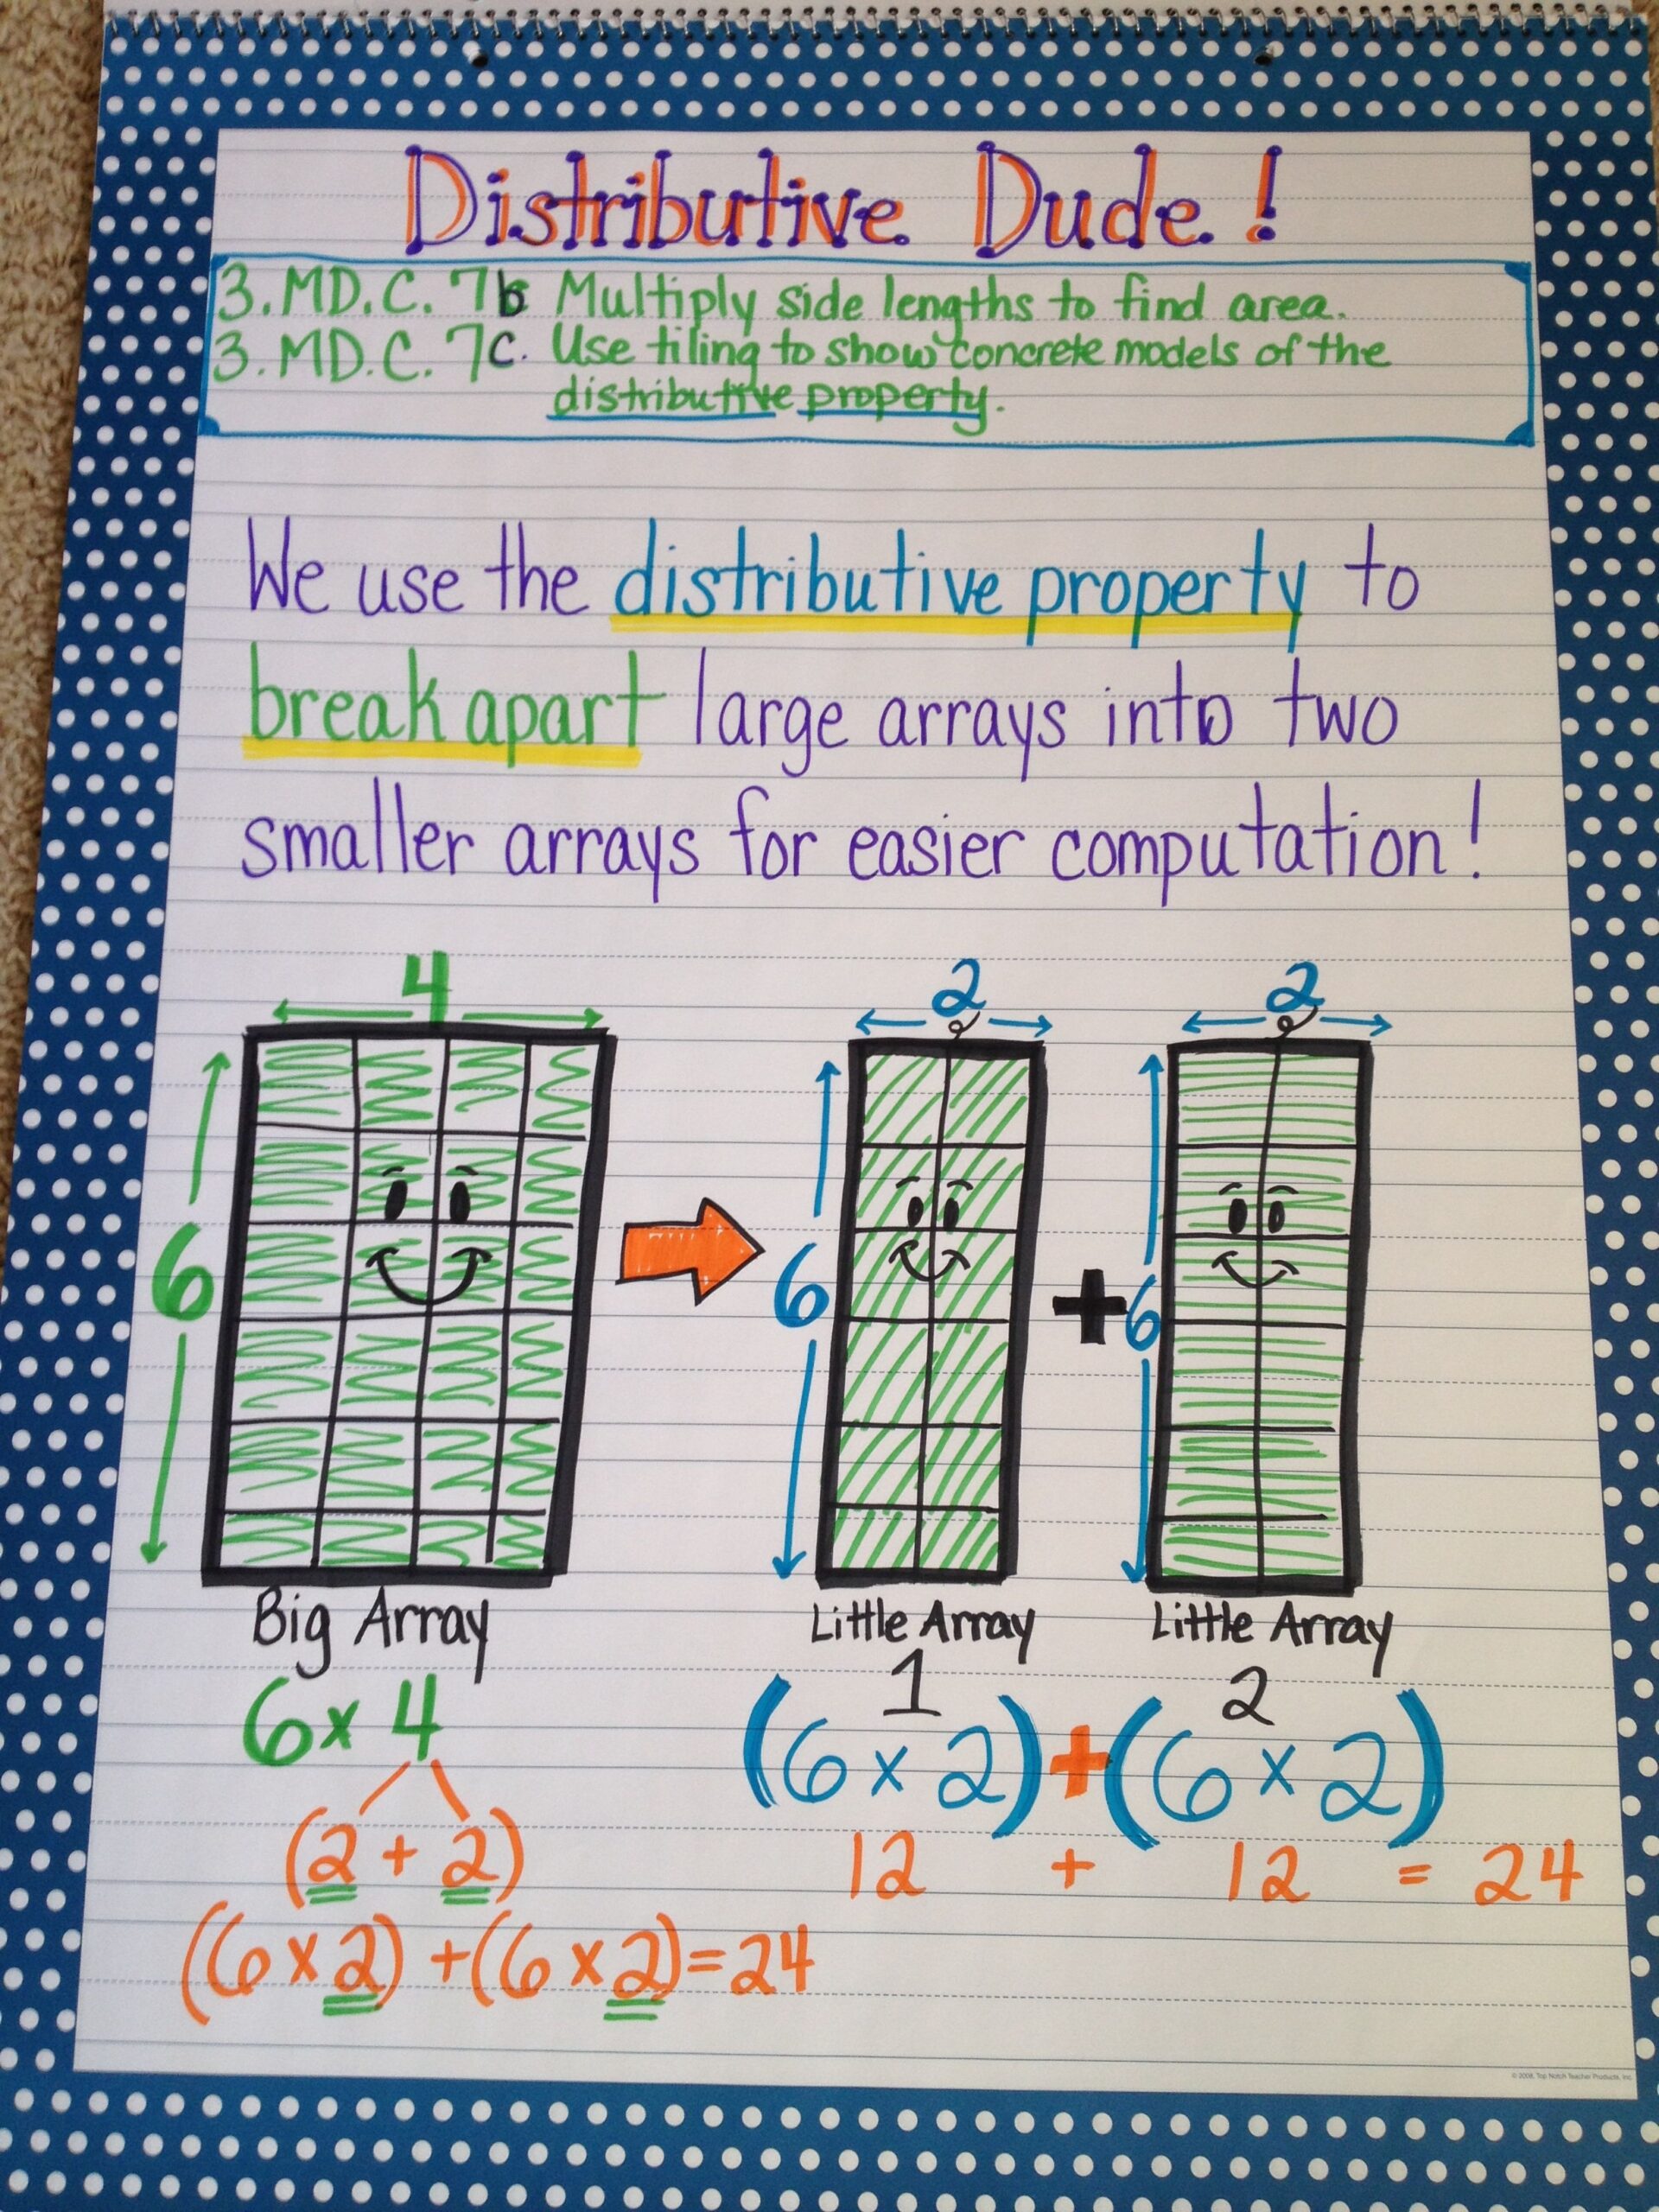 Distributive Dude!
3.MD.C.7b Multiply side lengths to find area.
3.MD.C.7c. Use tiling to show concrete models of the
distributive property.
We use the distributive property to
break apart large arrays into two
smaller arrays for easier computation!
4
2
2
6
6
+
6
Big Array
Little Array
1
Little Array
2
6 x 4
(2 + 2)
((6 x 2) + (6 x 2) = 24
(6 x 2) + (6 x 2)
12 + 12 = 24
© 2008, Top Notch Teacher Products, Inc.